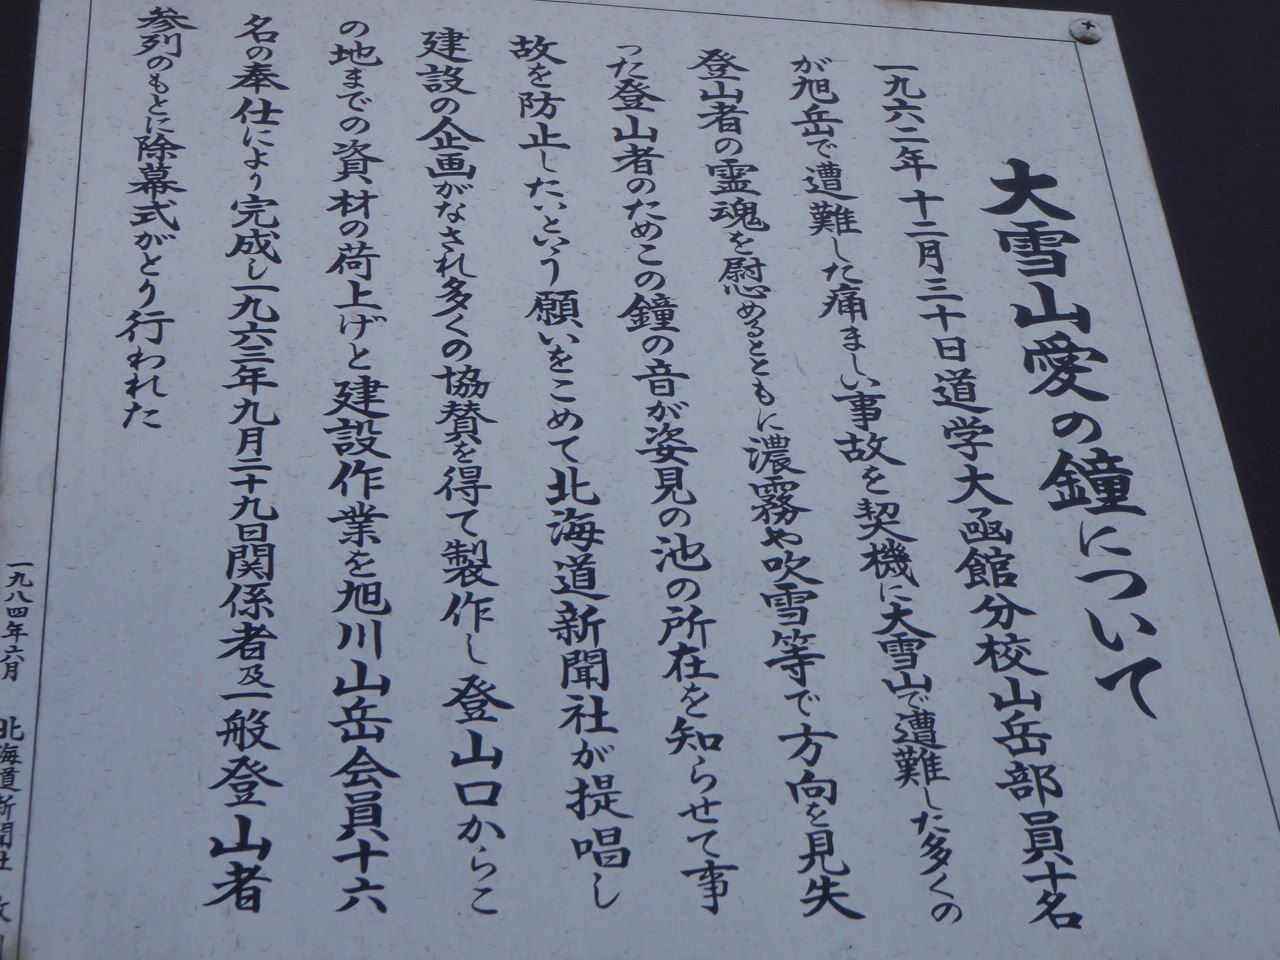 大雪山愛の鐘について
一九六二年十二月三十日道学大函館分校山岳部員十名
が旭岳で遭難した痛ましい事故を契機に大雪山で遭難した多くの
登山者の霊魂を慰めるとともに濃霧や吹雪等で方向を見失
った登山者のためこの鐘の音が姿見の池の所在を知らせて事
故を防止したいという願いをこめて北海道新聞社が提唱し
建設の企画がなされ多くの協賛を得て製作し登山口からこ
の地までの資材の荷上げと建設作業を旭川山岳会員十六
名の奉仕により完成し一九六三年九月二十九日関係者及一般登山者
参列のもとに除幕式がとり行われた
一九八四年六月 北海道新聞社